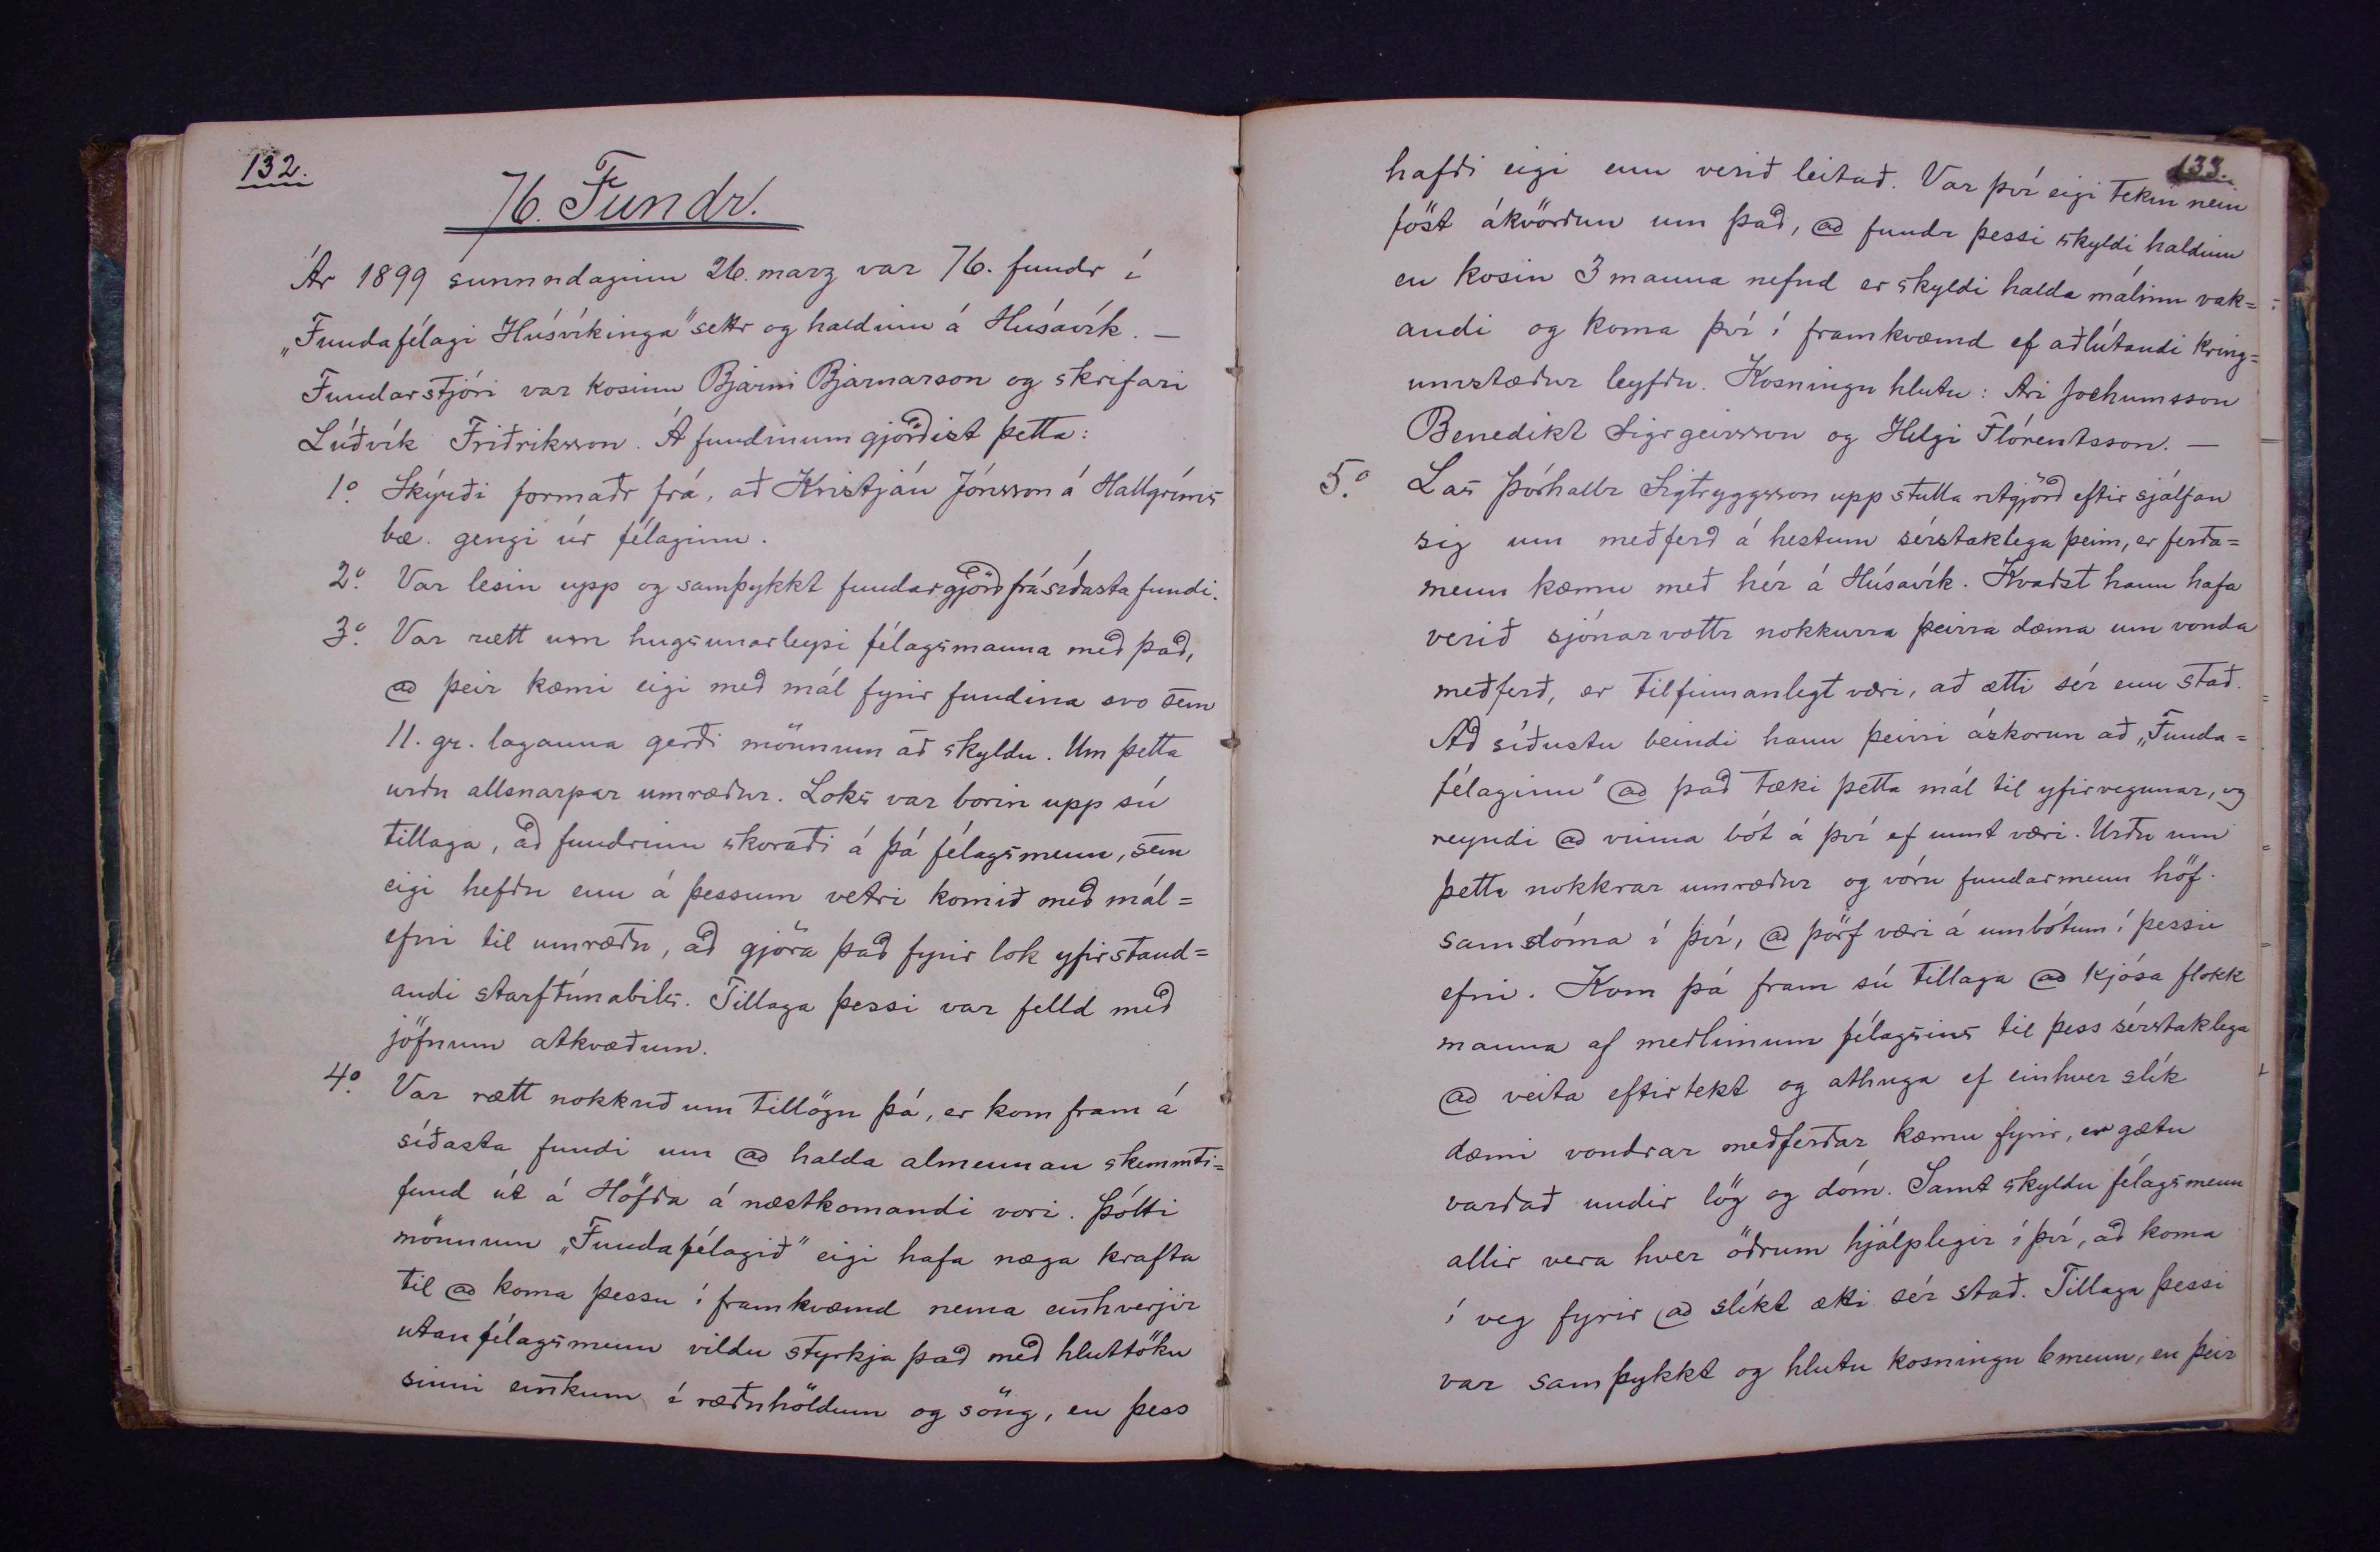 132.
76. Fundr.
Ár 1899 sunnudaginn 26. marz var 76. fundr í
„Fundafélagi Húsvíkinga" settr og haldinn á Húsavík. —
Fundarstjóri var kosinn Bjarni Bjarnarson og skrifari
Lúðvík Friðriksson. Á fundinum gjörðist þetta:
1.° Skýrði formaðr frá, að Kristján Jónsson á Hallgríms
bæ. gengi úr félaginu.
2.° Var lesin upp og samþykkt fundargjörð frá síðasta fundi.
3.° Var rætt um hugsunarleysi félagsmanna með það,
@ þeir kæmi eigi með mál fyrir fundina svo sem
11. gr. laganna gerði mönnum að skyldu. Um þetta
urðu allsnarpar umræður. Loks var borin upp sú
tillaga, að fundrinn skoraði á þá félagsmenn, sem
eigi hefðu enn á þessum vetri komið með mál=
efni til umræðu, að gjöra það fyrir lok yfirstand=
andi starftímabils. Tillaga þessi var felld með
jöfnum atkvæðum.
4.° Var rætt nokkuð um tillögu þá, er kom fram á
síðasta fundi um @ halda almennan skemmti=
fund út á Höfða á næstkomandi vori. Þótti
mönnum „Fundafélagið" eigi hafa næga krafta
til @ koma þessu í framkvæmd nema einhverjir
utanfélagsmenn vildu styrkja það með hluttöku
sinni einkum í ræðuhöldum og söng, en þess
133.
hafði eigi enn verið leitað. Var því eigi tekin nein
föst ákvörðun um það, @ fundr þessi skyldi haldinn
en kosin 3 manna nefnd er skyldi halda málinu vak=
andi og koma því í framkvæmd ef aðlútandi kring=
umstæður leyfðu. Kosningu hlutu: Ari Jochumsson
Benedikt Sigrgeirsson og Helgi Flórentsson. —
5.° Las Þórhallr Sigtryggsson upp stutta ritgjörð eftir sjálfan
sig um meðferð á hestum sérstaklega þeim, er ferða=
menn kæmu með hér á Húsavík. Kvaðst hann hafa
verið sjónarvottr nokkurra þeirra dæma um vonda
meðferð, er tilfinnanlegt væri, að ætti sér enn stað.
Að síðustu beindi hann þeirri áskorun að „Funda=
félaginu" @ það tæki þetta mál til yfirvegunar, og
reyndi @ vinna bót á því ef unnt væri. Urðu um
þetta nokkrar umræður og vóru fundarmenn höf.
samdóma í því, @ þörf væri á umbótum í þessu
efni. Kom þá fram sú tillaga @ kjósa flokk
manna af meðlimum félagsins til þess sérstaklega
@ veita eftirtekt og athuga ef einhver slík
dæmi vondrar meðferðar kæmu fyrir, er gætu
varðað undir lög og dóm. Samt skyldu félagsmenn
allir vera hver öðrum hjálplegir í því, að koma
í veg fyrir @ slíkt ætti sér stað. Tillaga þessi
var samþykkt og hlutu kosningu 6 menn, en þeir